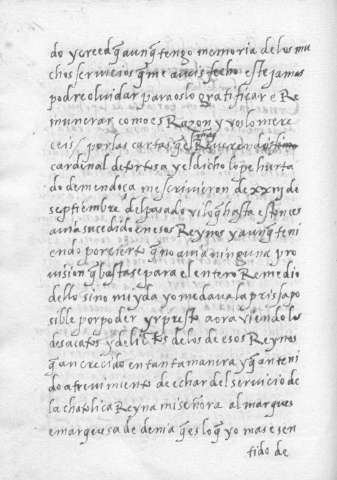 do y creed q̃ aunq̃ tengo memoria de los mu
chos serviçios q̃ me aveis fecho este jamas
podre olvidar para os lo gratificar e Re
munerar como es Razon y vos lo mere
ceis / por las cartas q̃ el Reverendisimo
cardenal de tortosa y el dicho lope hurta
do de mendoça me scrivieron de xxiij de
septiembre del pasado vi lo q̃ hasta estonces
avia sucedido en esos Reynos y aunq̃ teni
endo por cierto q̃ no avia ninguna pro
vision q̃ bastase para el entero Remedio
dello sino mi yda yo me dava la prisa po
sible por poder yr presto aora viendo los
desacatos y delictos de los de esos Reynos
q̃ an crecido en tanta manera y q̃ an teni
do atrevimiento de echar del servicio de
la chatolica Reyna mi señora al marques
e marquesa de denia q̃ es lo q̃ yo mas e sen
tido de